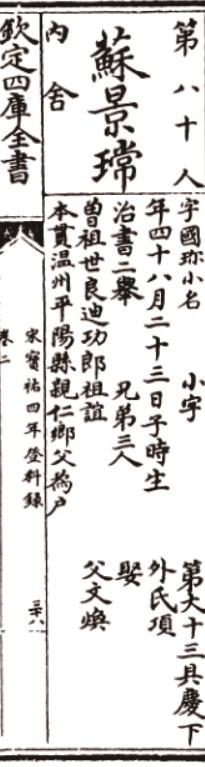 第八十人
蘇景瑺
內舍
字國珎小名 小字 第大十三具慶下
年四十八月二十三日子時生 外氏項
治書二舉 兄弟三人 娶
曽祖世良迪功郎祖誼 父文煥
本貫温州平陽縣親仁鄉父為戶
欽定四庫全書
宋寳祐四年登科錄
卷二
三十八